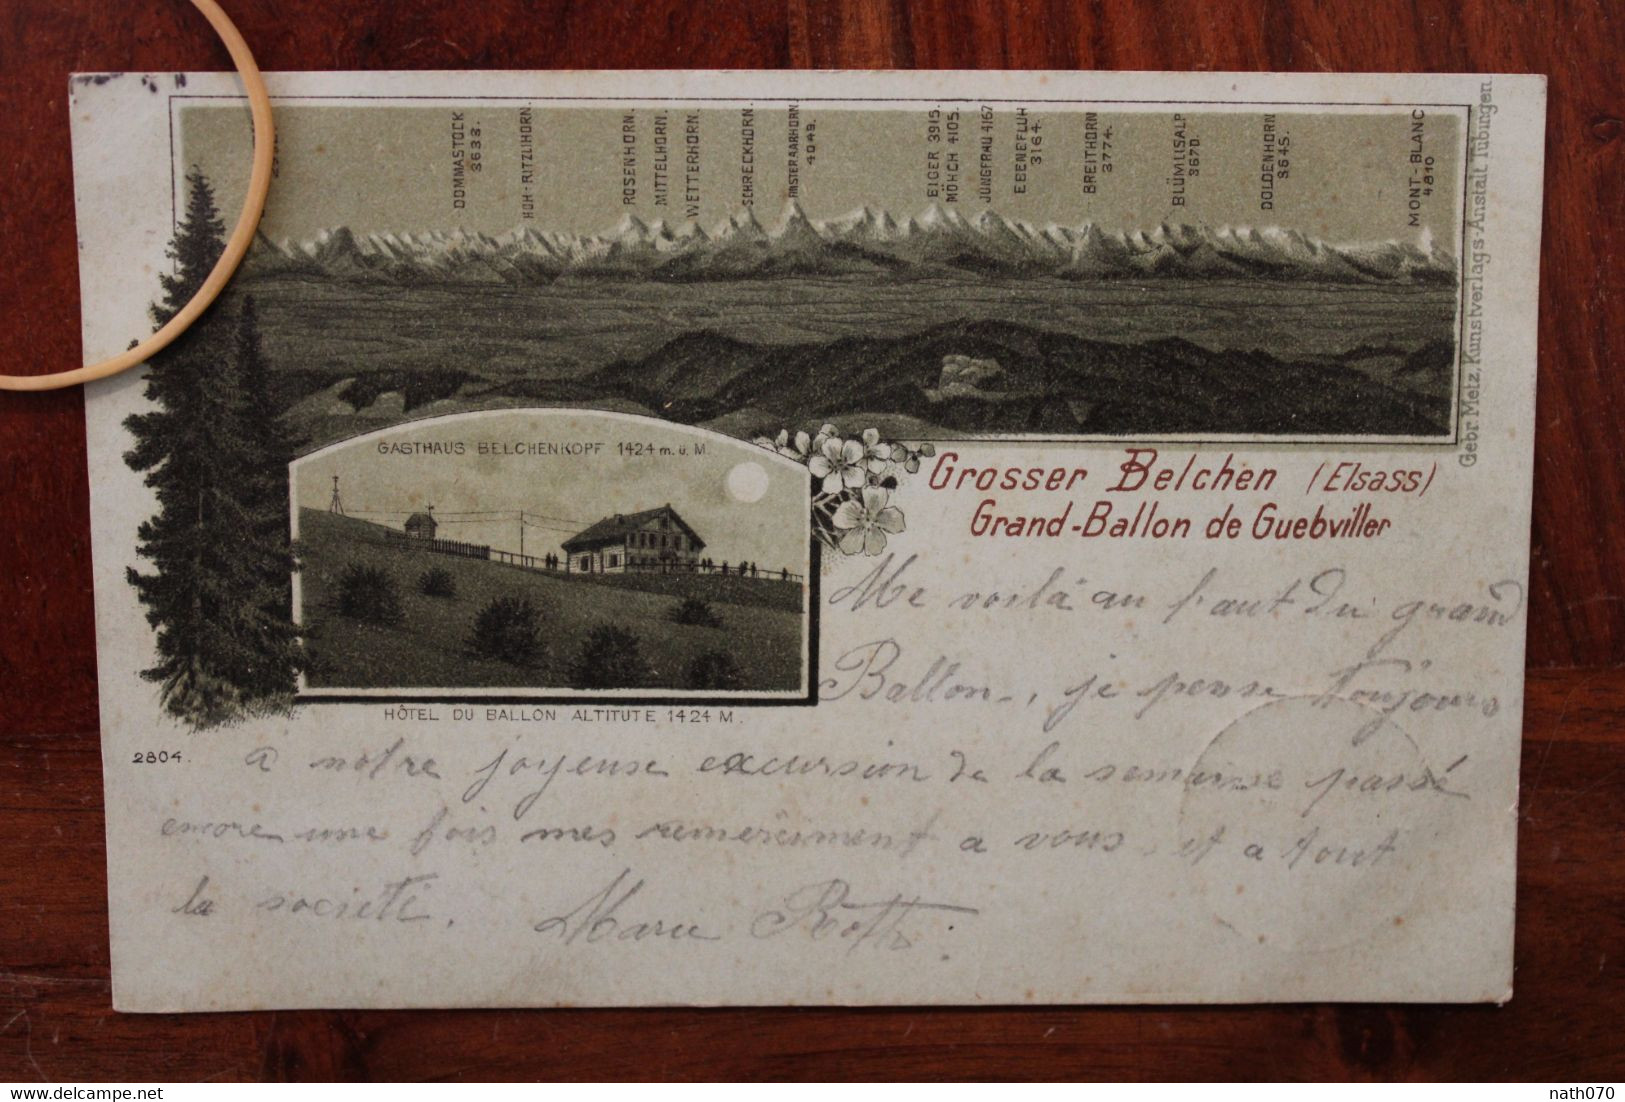 DOMMASTOCK
3633.
HUH-RITZLIHORN.
ROSENHORN.
MITTELHORN.
WETTERHORN.
SCHRECKHORN.
FINSTERAARHORN.
4049.
EIGER 3915.
MÖNCH 4105.
JUNGFRAU 4167
EBENEFLUH
3164.
BREITHORN
3774.
BLÜMLISALP
3670.
DOLDENHORN
3645.
MONT-BLANC
4810
Gebr. Metz, Kunstverlags-Anstalt Tübingen.
GASTHAUS BELCHENKOPF 1424 m. ü. M.
Grosser Belchen (Elsass)
Grand-Ballon de Guebviller
HÔTEL DU BALLON ALTITUTE 1424 M.
2804.
Me voilà au haut du grand
Ballon., je pense toujours
a notre joyeuse excursion de la semaine passé
encore une fois mes remerciment a vous et a tout
la société. Marie Roth.
nath070